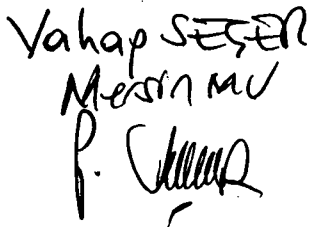 Vahap SEÇER
Mersin MV